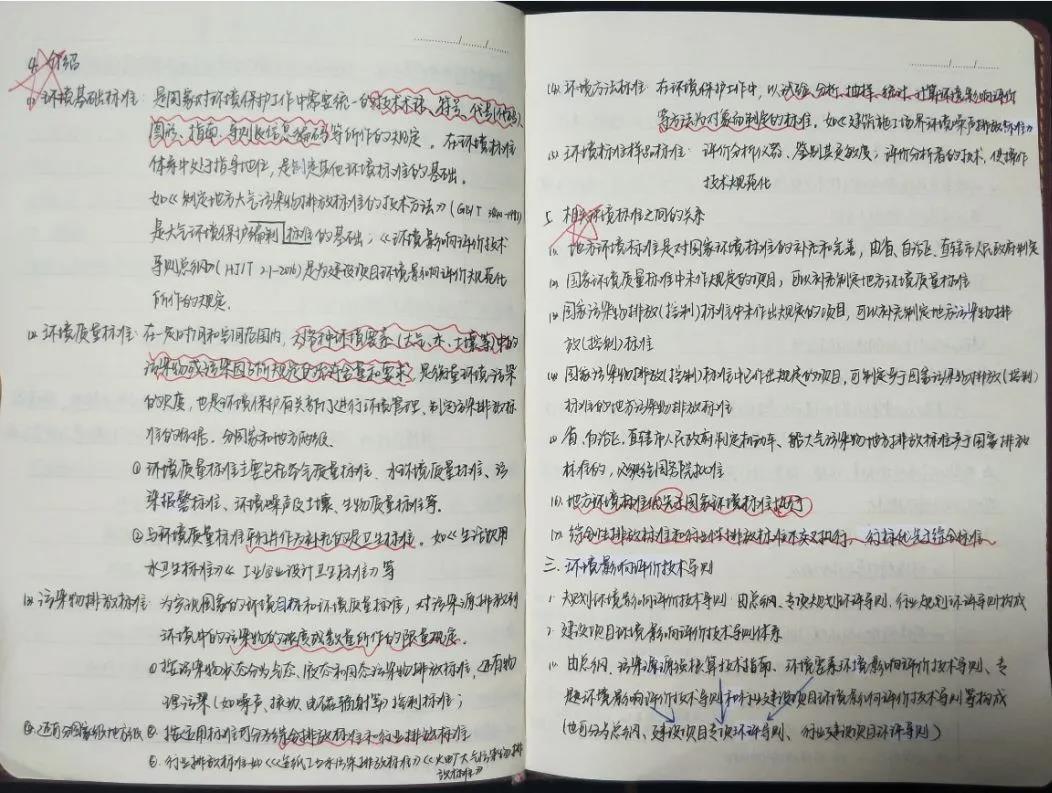 4. 介绍
(1) 环境基础标准: 是国家对环境保护工作中需要统一的技术术语、符号、代号(代码)、
图形、指南、导则及信息编码等所作的规定。在环境标准
体系中处于指导地位, 是制定其他环境标准的基础。
如《制定地方大气污染物排放标准的技术方法》(GB/T
是大气环境保护编制标准的基础; 《环境影响评价技术
导则总纲》(HJ/T 2.1-2016)是为建设项目环境影响评价规范化
所作的规定.
(2) 环境质量标准: 在一定时间和空间范围内, 对各种环境要素(大气、水、土壤等)中的
污染物或污染因子所规定的允许含量和要求, 是衡量环境污染
的尺度, 也是环境保护有关部门进行环境管理、制定污染排放标
准的依据. 分国家和地方两级.
① 环境质量标准主要包括空气质量标准、水环境质量标准、污
染报警标准、环境噪声及土壤、生物质量标准等.
② 与环境质量标准平行并作为补充的是卫生标准. 如《生活饮用
水卫生标准》《工业企业设计卫生标准》等
(3) 污染物排放标准: 为实现国家的环境目标和环境质量标准, 对污染源排放到
环境中的污染物的浓度或数量所作的限量规定.
① 按污染物状态分为气态、液态和固态污染物排放标准, 还有物
理污染(如噪声、振动、电磁辐射等)控制标准;
④ 还可分国家级地方级 ② 按适用标准可分为综合排放标准和行业排放标准
③ 行业排放标准如《造纸工业水污染排放标准》《火电厂大气污染物排
放标准》
(4) 环境方法标准: 在环境保护工作中, 以试验、分析、抽样、统计、计算环境影响评价
等方法为对象而制定的标准. 如《建筑施工场界环境噪声排放标准》
(5) 环境标准样品标准: 评价分析仪器、鉴别其灵敏度; 评价分析者的技术, 使操作
技术规范化
5. 相关环境标准之间的关系
(1) 地方环境标准是对国家环境标准的补充和完善, 由省、自治区、直辖市人民政府制定
(2) 国家环境质量标准中未作规定的项目, 可以补充制定地方环境质量标准
(3) 国家污染物排放(控制)标准中未作出规定的项目, 可以补充制定地方污染物排
放(控制)标准
(4) 国家污染物排放(控制)标准中已作出规定的项目, 可制定严于国家污染物排放(控制)
标准的地方污染物排放标准
(5) 省、自治区、直辖市人民政府制定机动车、船大气污染物地方排放标准严于国家排放
标准的, 必须经国务院批准
(6) 地方环境标准优先于国家环境标准执行
(7) 综合性排放标准和行业性排放标准不交叉执行、行标优先于综合标准
三、环境影响评价技术导则
1. 规划环境影响评价技术导则 由总纲、专项规划环评导则、行业规划环评导则构成
2. 建设项目环境影响评价技术导则体系
(1) 由总纲、污染源源强核算技术指南、环境要素环境影响评价技术导则、专
题环境影响评价技术导则和行业建设项目环境影响评价技术导则等构成
(也可分为总纲、建设项目专项环评导则、行业建设项目环评导则)